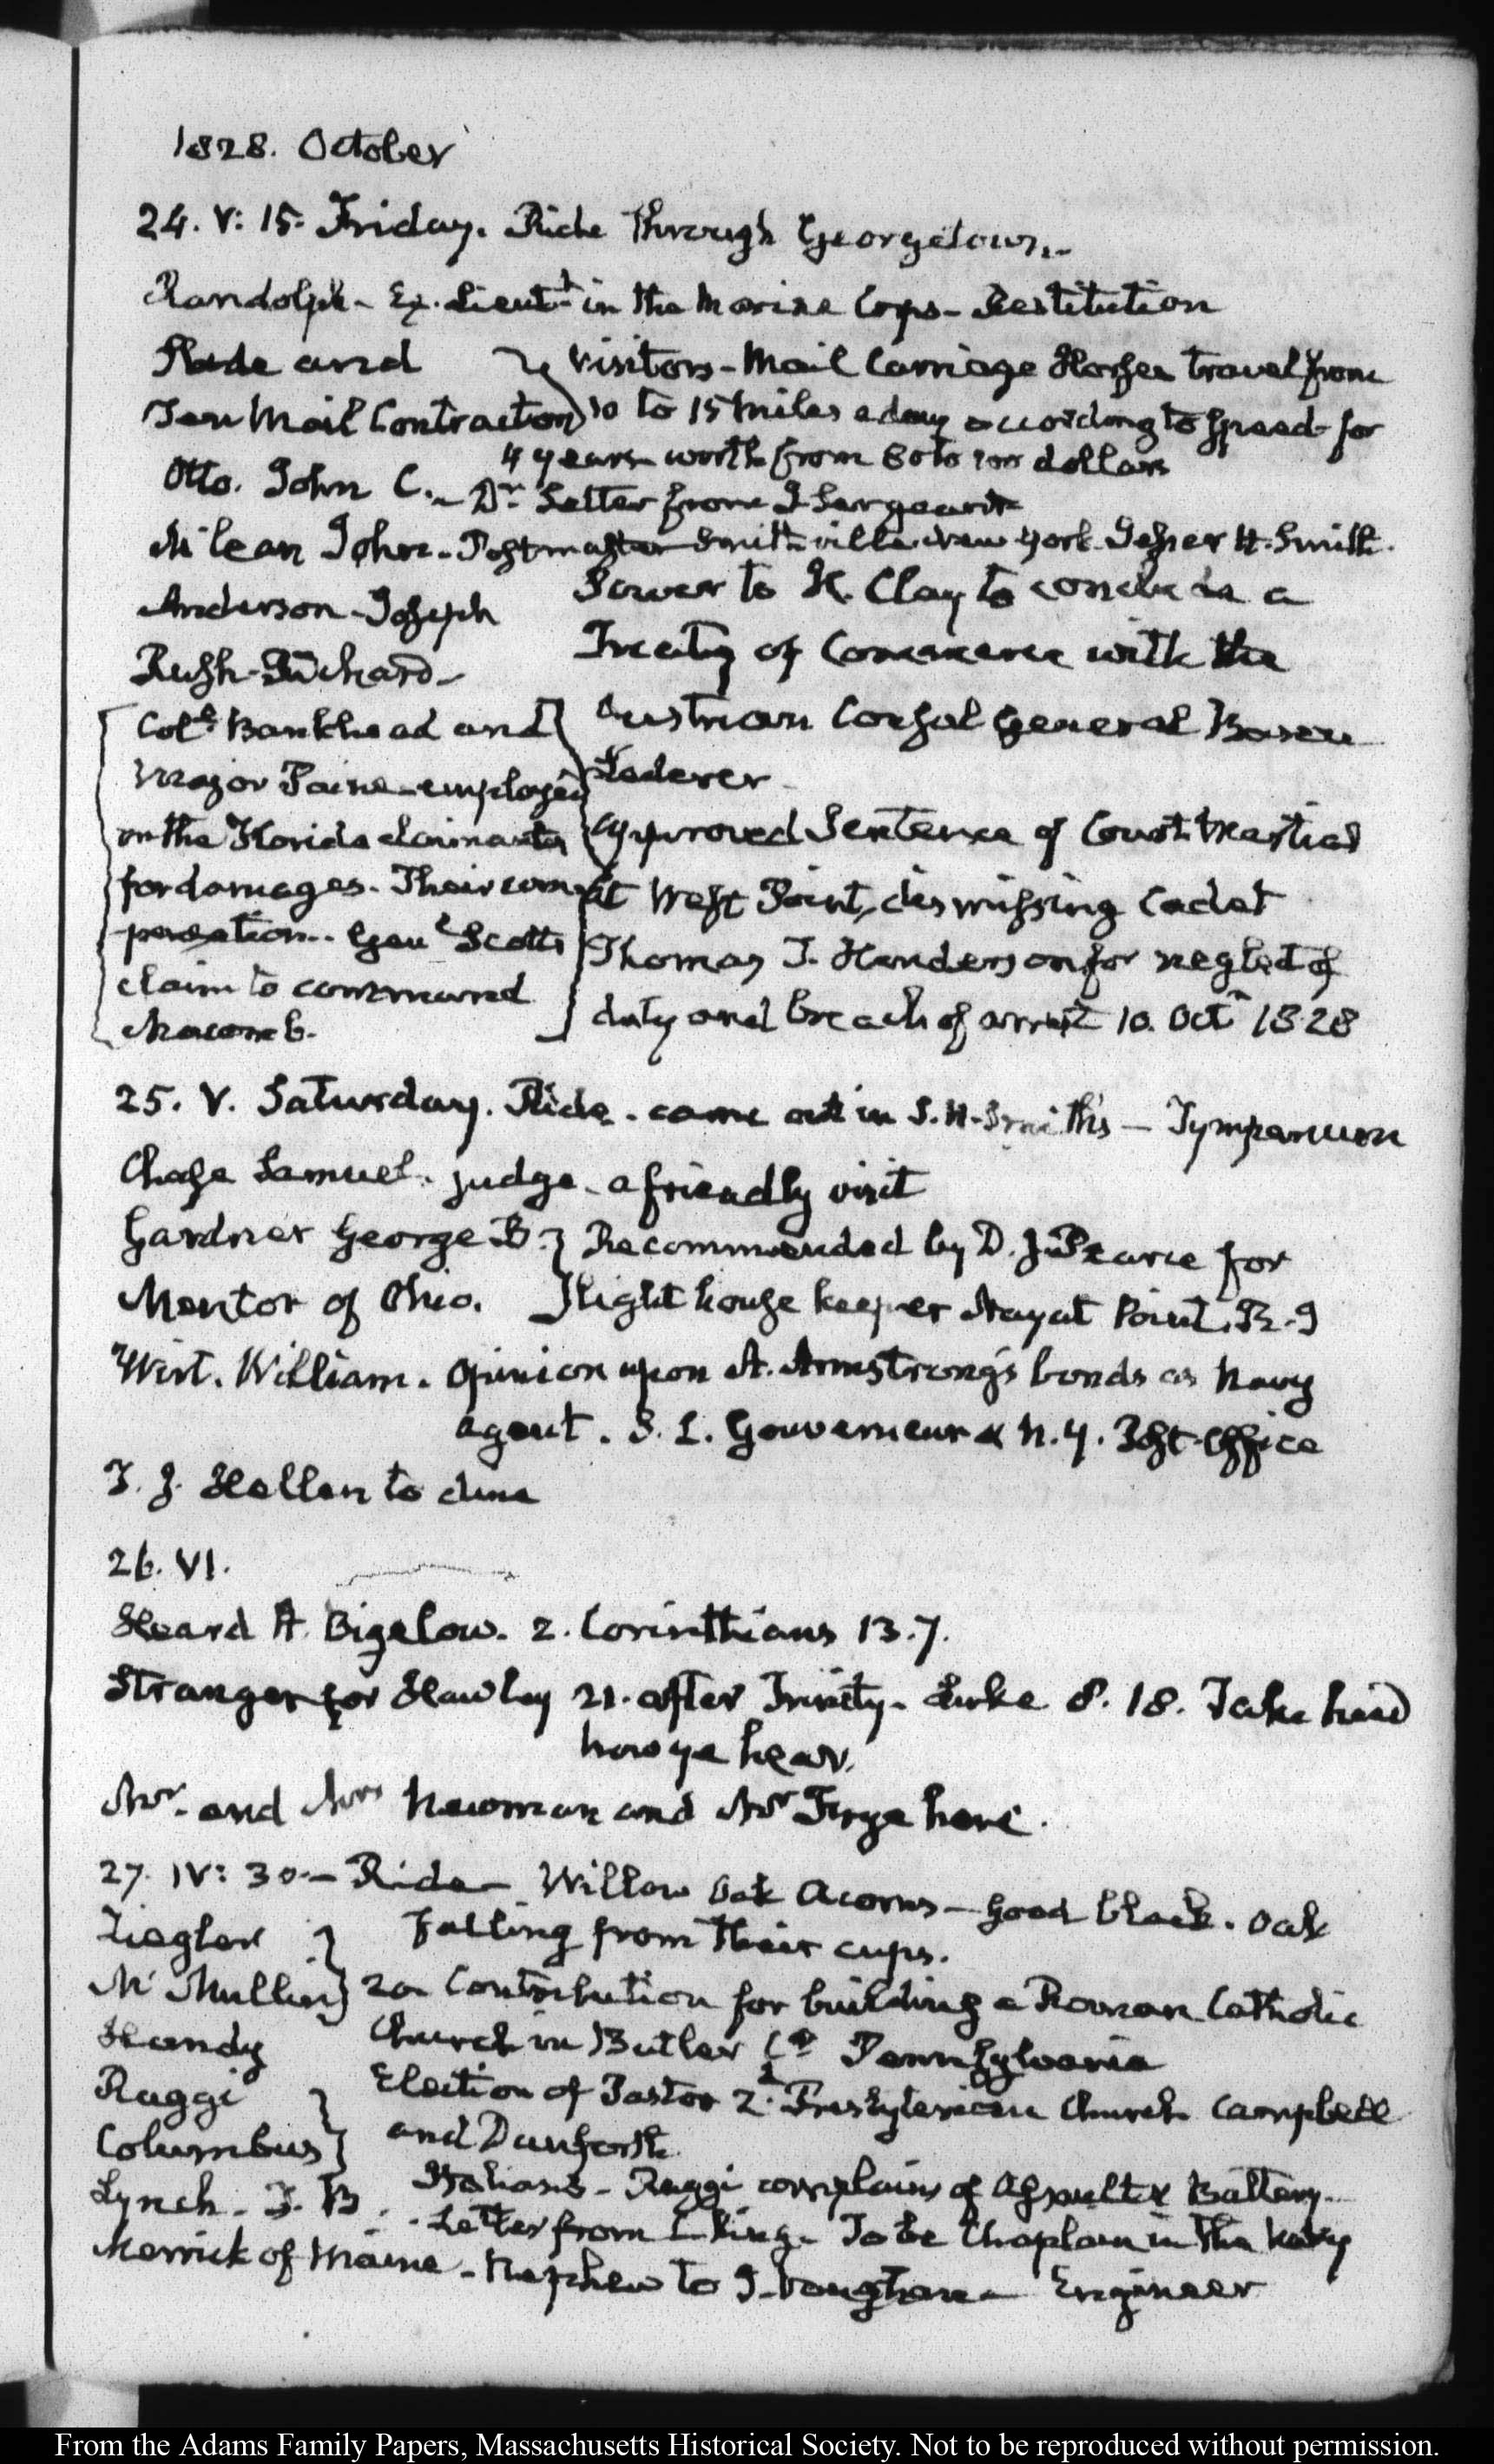 1828. October
24. V: 15. Friday. Ride through Georgetown.
Randolph - Ex. Lieutt. in the Marine Corps - Restitution
and } Visitors - Mail Carriage Horses travel from
Mail Contractors 10 to 15 miles a day according to speed - for
4 years worth from 80 to 100 dollars
Otto. John C. - Dr. Letter from J Sergeant
McLean John - Postmaster Smithville New York. Jesper H. Smith.
Anderson - Joseph
Power to H. Clay to conclude a
Rush - Richard -
Treaty of Commerce with the
Austrian Consul General Baron
Lederer -
Coll. Bankhead and
Major Paine - employed
on the Florida claimants
for damages. Their com-
pensation. Genl. Scott's
claim to command
Macomb.
Approved Sentence of Court Martial
at West Point, dismissing Cadet
Thomas J. Henderson for neglect of
duty and breach of arrest 10. Octr. 1828
25. V. Saturday. Ride - came out in S. H. Smith's - Tympanum
Chase Samuel. judge - a friendly visit
Gardner George B. } Recommended by D. J. Pearce for
Mentor of Ohio. Light house keeper Nayat Point. R. I
Wirt. William. Opinion upon A. Armstrong's bonds as Navy
agent. S. L. Gouverneur & N. Y. Post-Office
T. J. Hellen to dine
26. VI.
Heard A. Bigelow. 2. Corinthians 13.7.
Stranger for Hawley 21. after Trinity - Luke 8. 18. Take heed
how ye hear.
Mr. and Mrs Newman and Mr Frye here.
27. IV: 30 - Ride - Willow Oak Acorns - good black. Oak
falling from their cups.
Ziegler }
McMullin } 20 Contribution for building a Roman Catholic
Church in Butler Co. Pennsylvania
Handy
Election of Pastor 2d. Presbyterian Church Campbell
and Danforth
Ruggi }
Columbus }
Italians - Ruggi complains of Assault & Battery -
Lynch - J. B. - Letter from C King - To be Chaplain in the Navy
Merrick of Maine - Nephew to J. Vaughan - Engineer
From the Adams Family Papers, Massachusetts Historical Society. Not to be reproduced without permission.